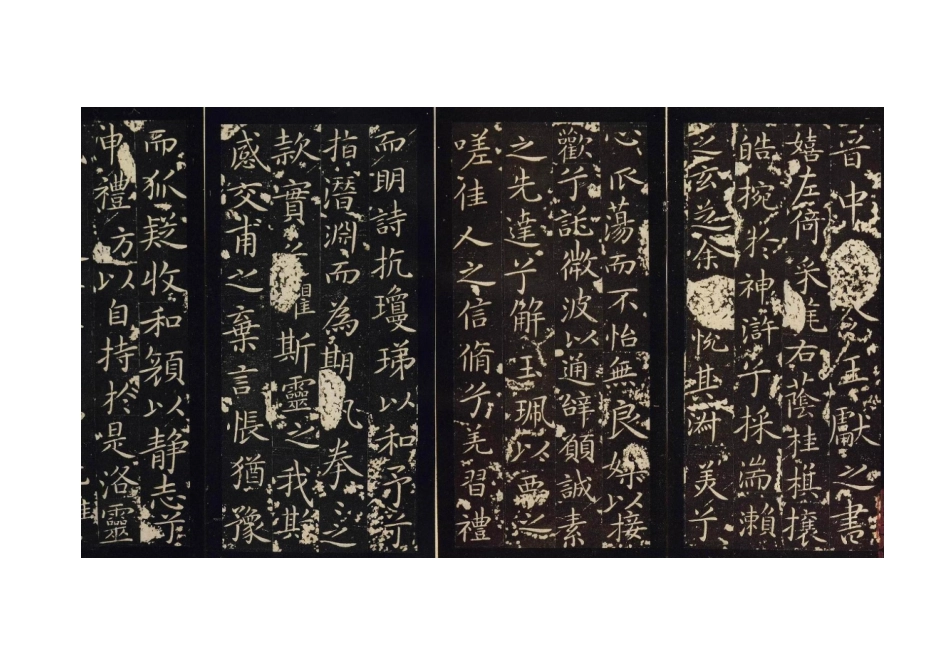 晉中令王獻之書
嬉左倚采旄右蔭桂棋攘
皓捥於神滸兮採湍瀨
之玄芝余悅其淑美兮
心爪蕩而不怡無良媒以接
歡兮託微波以通辭願誠素
之先達兮解玉珮以要之
嗟佳人之信脩兮羌習禮
而明詩抗瓊珶以和予兮
指潛淵而為期拳之
款實兮瞿斯靈之我其
感交甫之棄言悵猶豫
而狐疑收和顏以静志兮
申禮方以自持於是洛靈